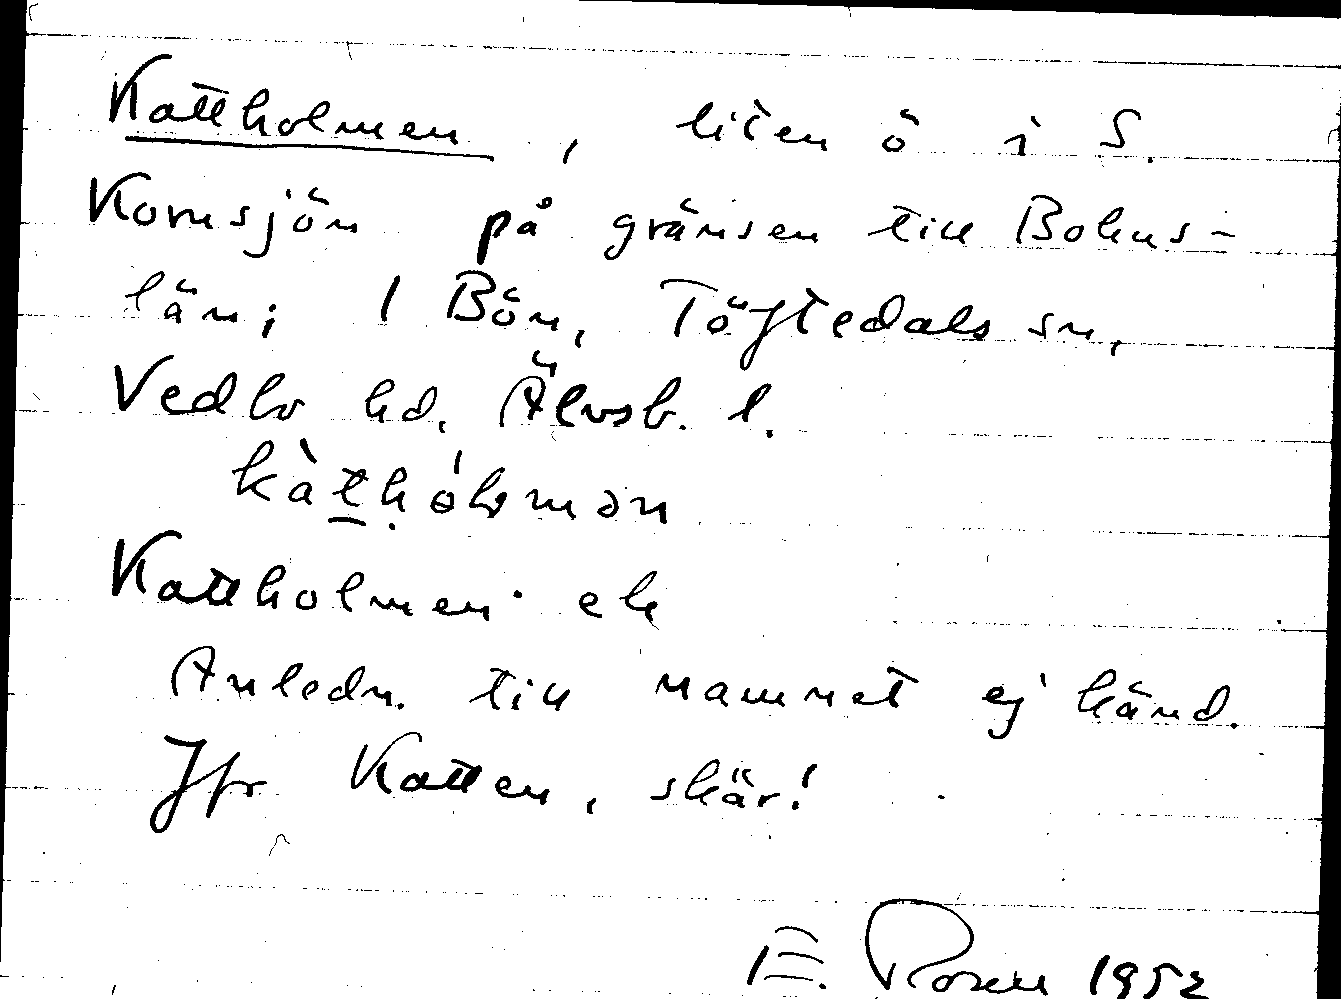 Kattholmen, liten ö i S.
Kornsjön på gränsen till Bohus-
län; 1 Bön, Töftedals sn,
Vedbo hd, Älvsb. l.
Kattholmen ek
Anledn. till namnet ej känd.
Jfr Katten, skär!
E. Rosen 1952